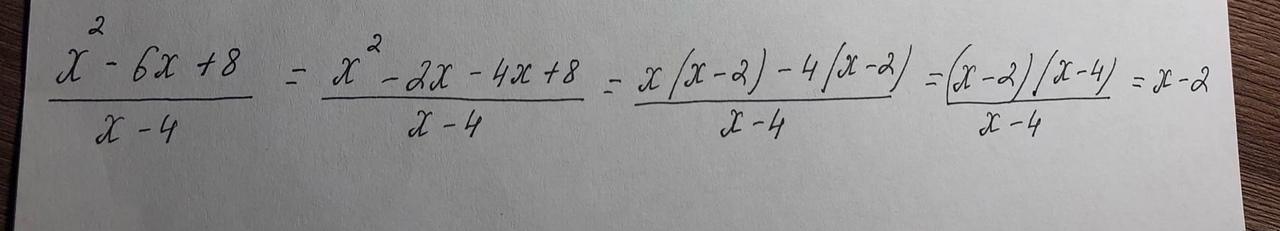 (x² - 6x + 8)/(x - 4) = (x² - 2x - 4x + 8)/(x - 4) = (x(x - 2) - 4(x - 2))/(x - 4) = ((x - 2)(x - 4))/(x - 4) = x - 2